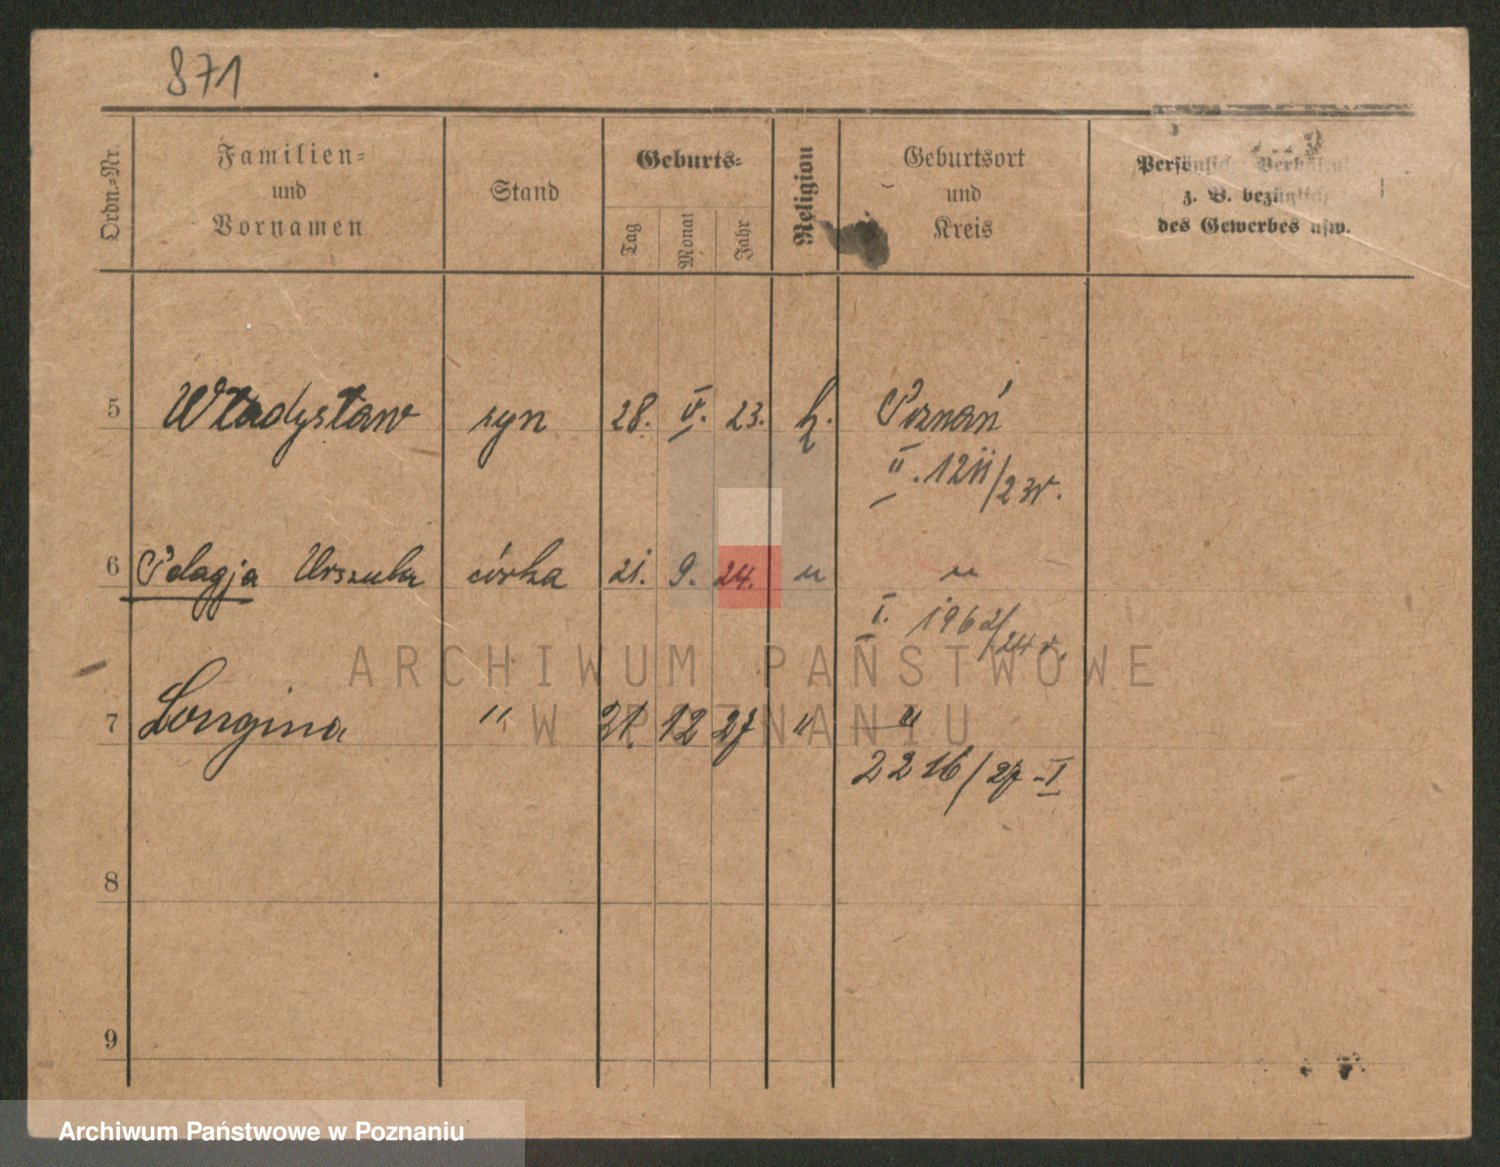 871
Ordn.=Nr.
Familien=
und
Vornamen
Stand
Geburts=
Tag
Monat
Jahr
Religion
Geburtsort
und
Kreis
Persönliche
z. B. bezüglich
des Gewerbes usw.
5 Władysław syn 28. V. 23. k. Poznań
II. 1211/23r.
6 Pelagja Urszula córka 21. 9. 24. " "
I. 1962/24 r.
7 Longina " 31. 12 27 " "
2216/27 - I
8
9
ARCHIWUM PAŃSTWOWE
W POZNANIU
Archiwum Państwowe w Poznaniu